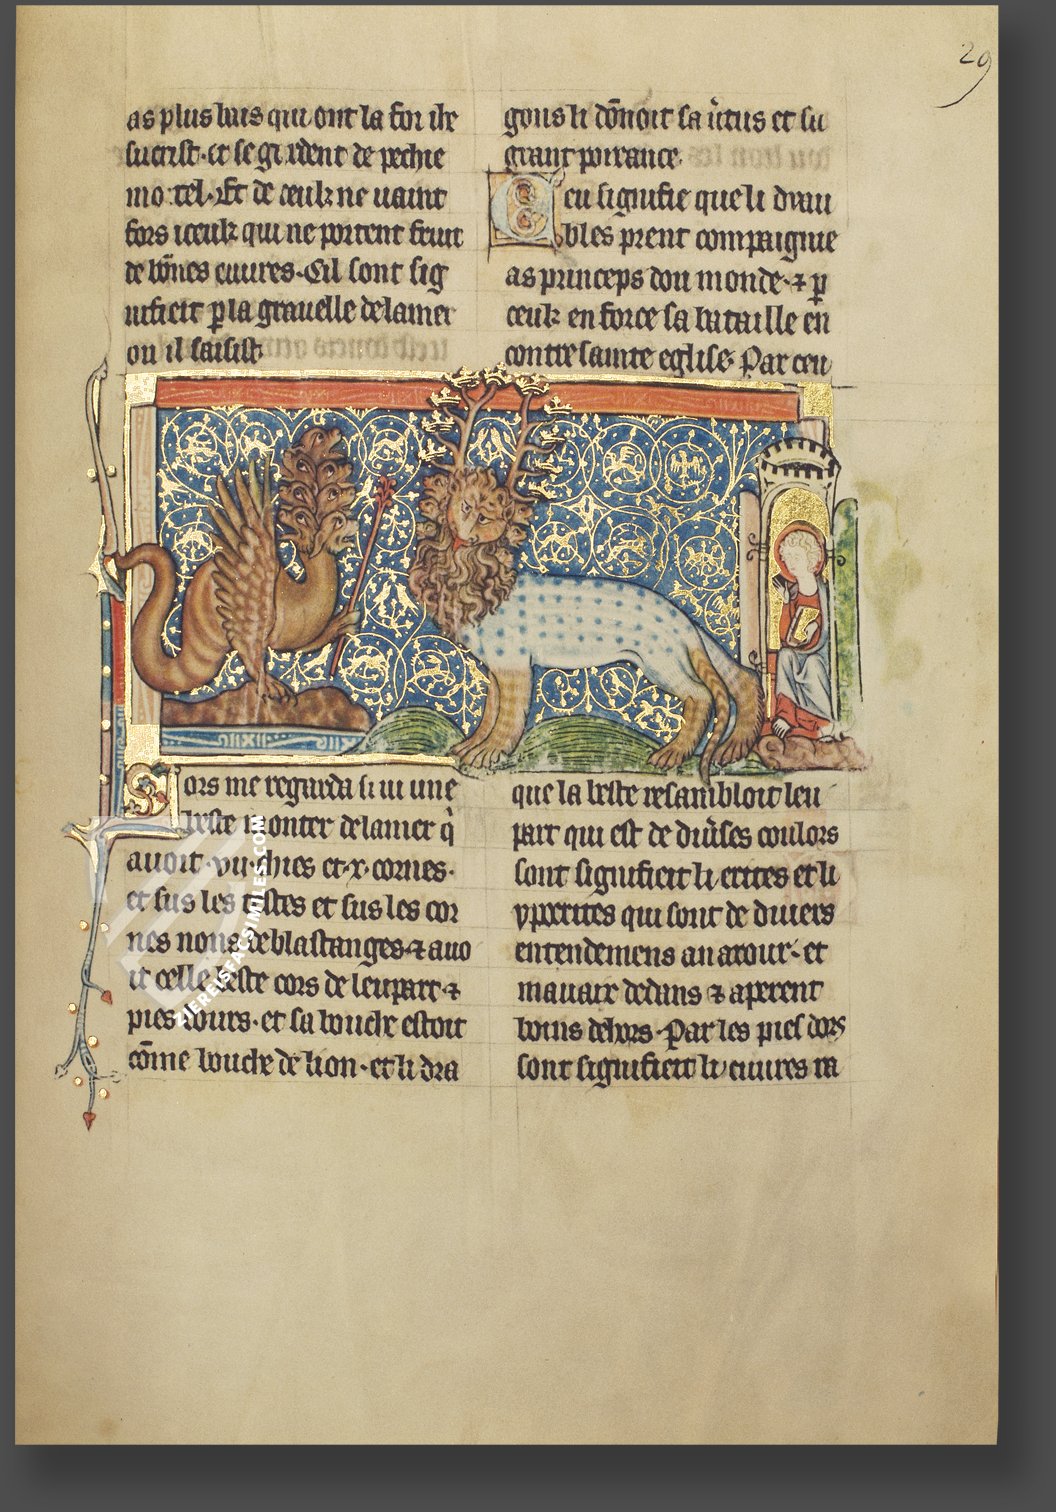 29
as plus bas qui ont la foi ihe
sucrist· et se gardent de pechie
mortel· Et de ceulz ne vaint
fors iceulz qui ne portent fruit
de bōnes euures· Cil sont sig
nifieit p̲ la grauelle de la mer
ou il saisist·
gons li dōnoit sa v̾tus et su
grant poixance·
Ceu signifie que li dyau
bles prent compaignie
as princeps dou monde· ⁊ p̲
ceulz en force sa bataille en
contre sainte eglise· Par ceu
Lors me regarda si ui une
beste monter de la mer q̾
auoit ·vii· chies et ·x· cornes·
et sus les testes et sus les cor
nes nons de blastanges ⁊ auo
it celle beste cors de leupart ⁊
pies dours· et sa bouche estoit
cōme bouche de lion· et li dra
que la beste resambloit leu
part qui est de diu̾ses coulors
sont signifieit li erites et li
yppocrites qui sont de diuers
entendemens an atour· et
mauaix dedans ⁊ aperent
boins dehors· Par les pies dors
sont signifieit li euures
ZIEREISFACSIMILES.COM